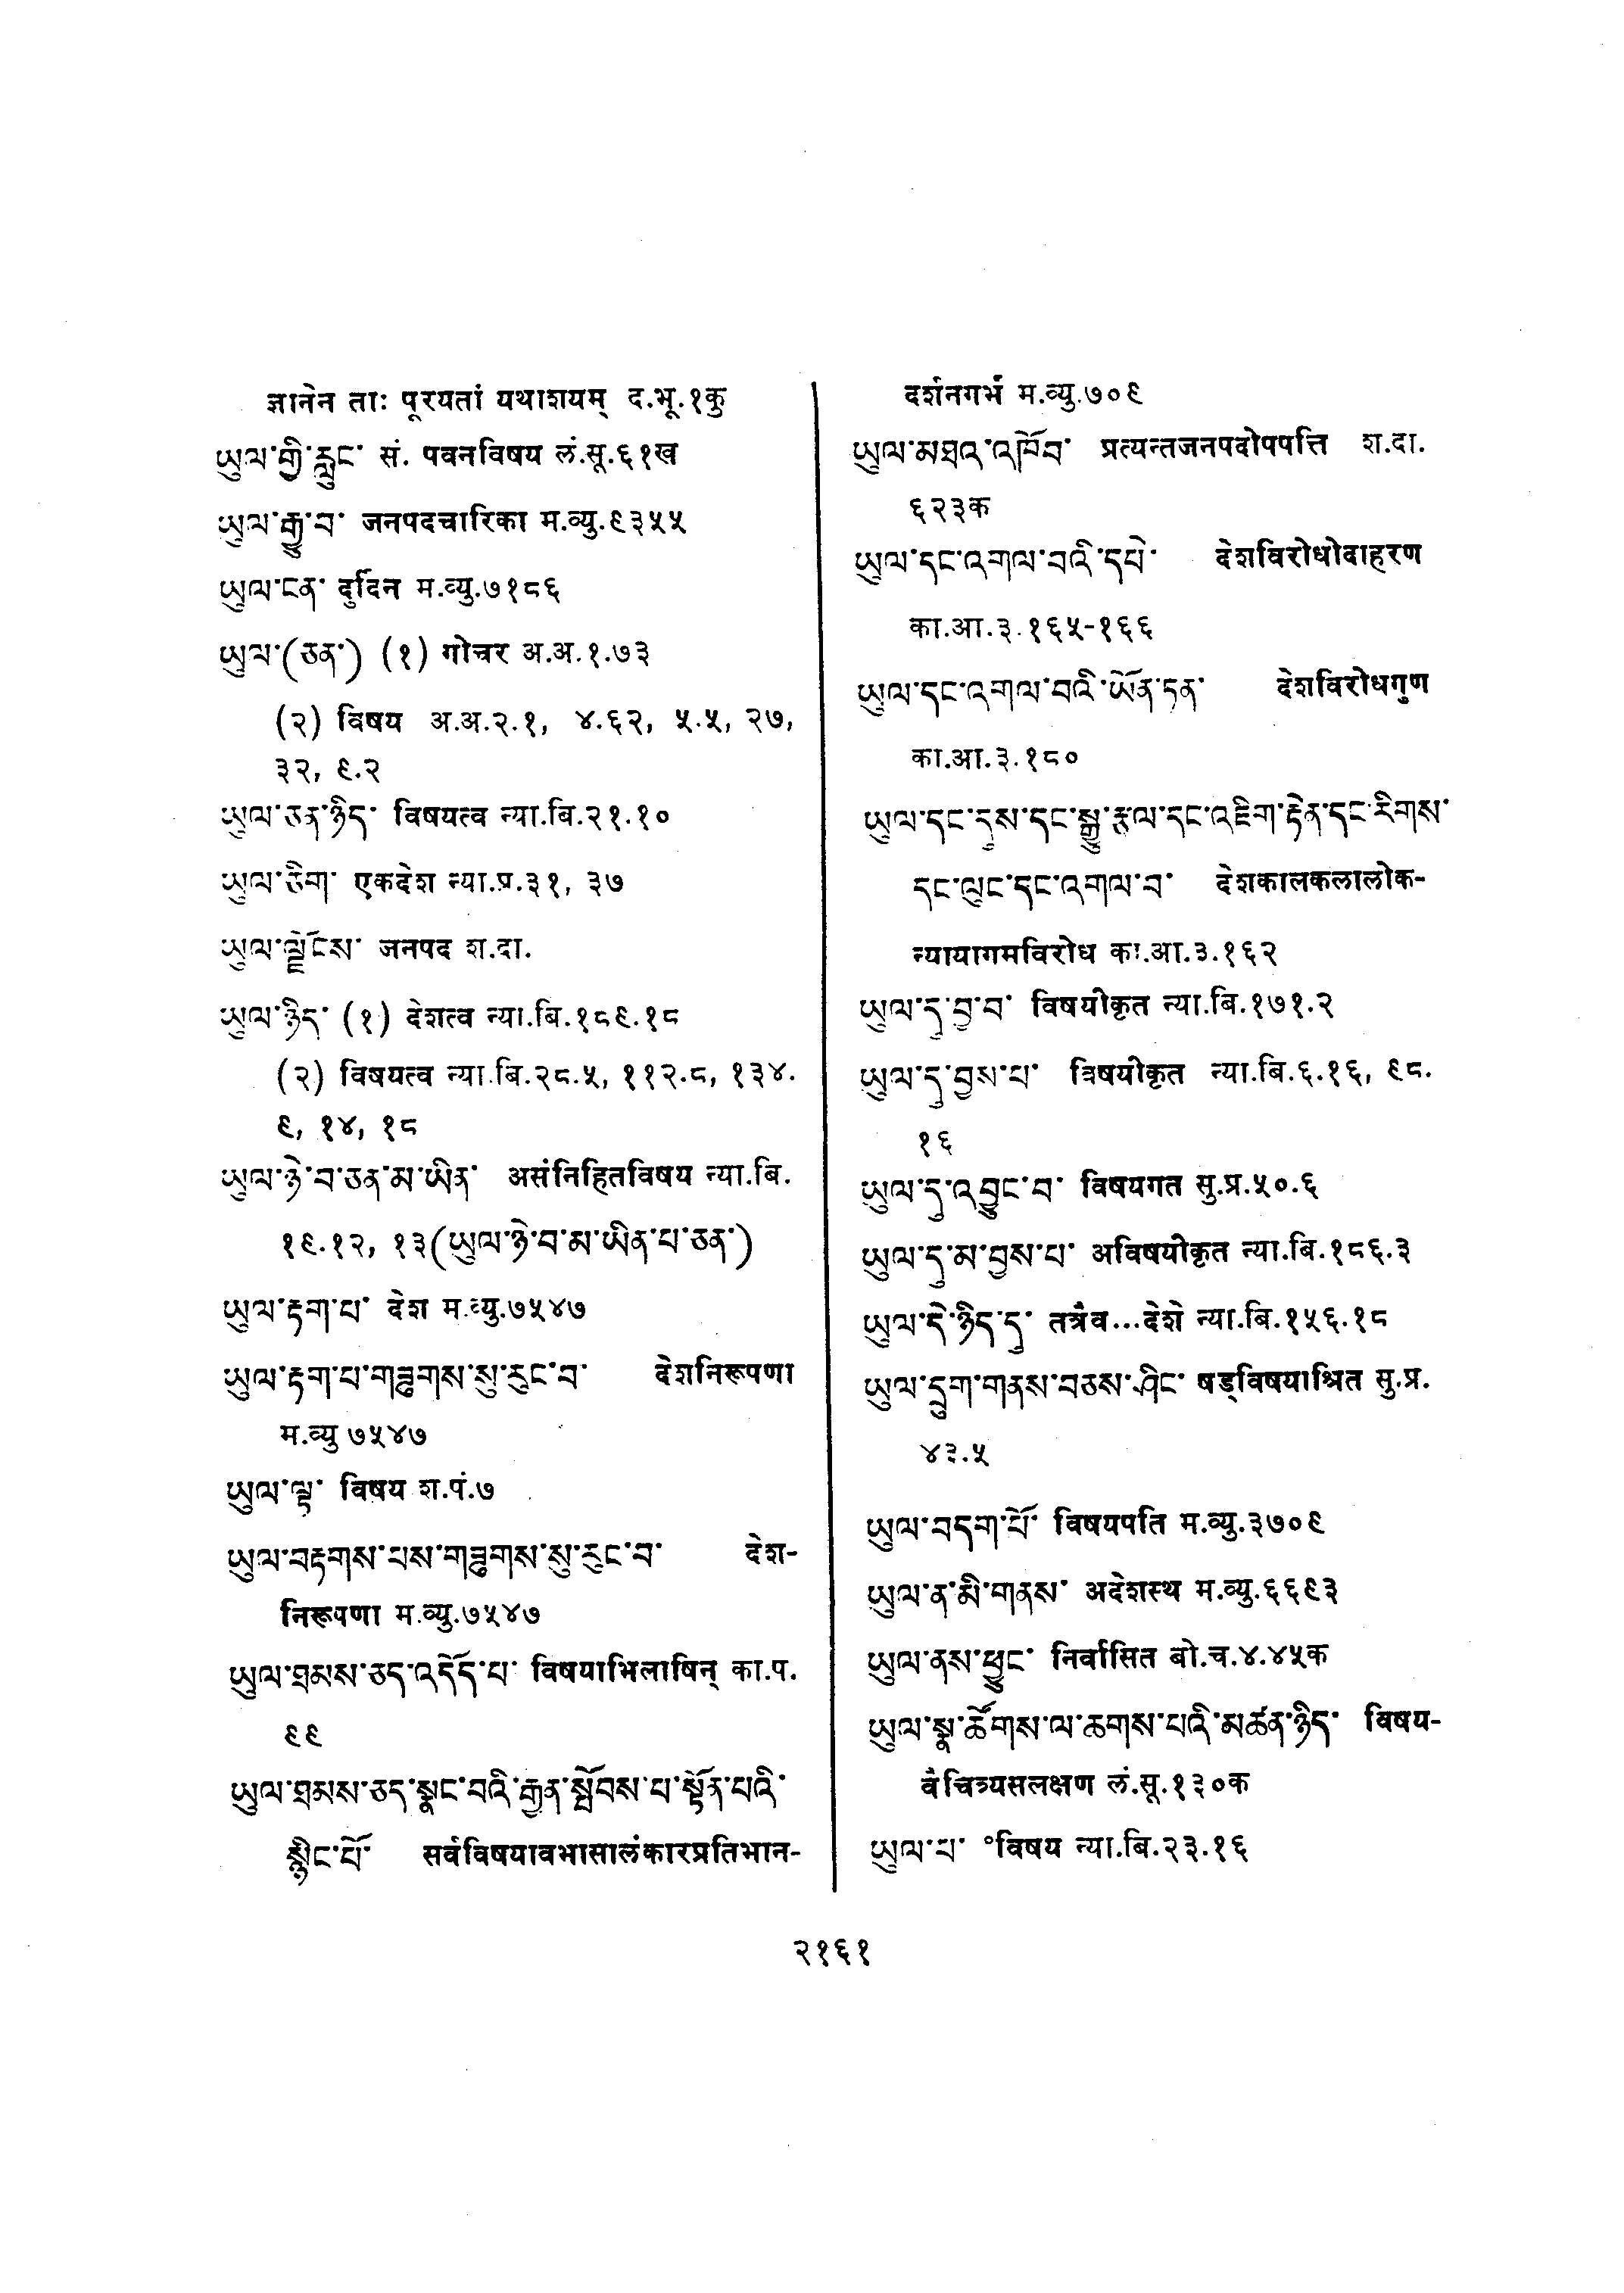 ज्ञानेन ताः पूरयतां यथाशयम् द.भू.१कु
ཡུལ་གྱི་རླུང་ सं. पवनविषय लं.सू.६१ख
ཡུལ་རྒྱུ་བ་ जनपदचारिका म.व्यु.९३५५
ཡུལ་ངན་ दुर्दिन म.व्यु.७१८६
ཡུལ་(ཅན་) (१) गोचर अ.अ.१.७३
(२) विषय अ.अ.२.१, ४.६२, ५.५, २७,
३२, ९.२
ཡུལ་ཅན་ཉིད་ विषयत्व न्या.बि.२१.१०
ཡུལ་ཅིག་ एकदेश न्या.प्र.३१, ३७
ཡུལ་ལྗོངས་ जनपद श.दा.
ཡུལ་ཉིད་ (१) देशत्व न्या.बि.१८९.१८
(२) विषयत्व न्या.बि.२८.५, ११२.८, १३४.
९, १४, १८
ཡུལ་ཉེ་བ་ཅན་མ་ཡིན་ असंनिहितविषय न्या.बि.
१९.१२, १३(ཡུལ་ཉེ་བ་མ་ཡིན་པ་ཅན་)
ཡུལ་རྟག་པ་ देश म.व्यु.७५४७
ཡུལ་རྟག་པ་གཟུགས་སུ་རུང་བ་ देशनिरूपणा
म.व्यु ७५४७
ཡུལ་ལྟ་ विषय श.पं.७
ཡུལ་བརྟགས་པས་གཟུགས་སུ་རུང་བ་ देश-
निरूपणा म.व्यु.७५४७
ཡུལ་ཐམས་ཅད་འདོད་པ་ विषयाभिलाषिन् का.प.
९९
ཡུལ་ཐམས་ཅད་སྣང་བའི་རྒྱན་སྤོབས་པ་སྟོན་པའི་
སྙིང་པོ་ सर्वविषयावभासालंकारप्रतिभान-
दर्शनगर्भ म.व्यु.७०९
ཡུལ་མཐའ་འཁོབ་ प्रत्यन्तजनपदोपपत्ति श.दा.
६२३क
ཡུལ་དང་འགལ་བའི་དཔེ་ देशविरोधोदाहरण
का.आ.३.१६५-१६६
ཡུལ་དང་འགལ་བའི་ཡོན་ཏན་ देशविरोधगुण
का.आ.३.१८०
ཡུལ་དང་དུས་དང་སྒྱུ་རྩལ་དང་འཇིག་རྟེན་དང་རིགས་
དང་ལུང་དང་འགལ་བ་ देशकालकलालोक-
न्यायागमविरोध का.आ.३.१६२
ཡུལ་དུ་བྱ་བ་ विषयीकृत न्या.बि.१७१.२
ཡུལ་དུ་བྱས་པ་ विषयीकृत न्या.बि.६.१६, ९८.
१६
ཡུལ་དུ་འབྱུང་བ་ विषयगत सु.प्र.५०.६
ཡུལ་དུ་མ་བྱས་པ་ अविषयीकृत न्या.बि.१८६.३
ཡུལ་དེ་ཉིད་དུ་ तत्रैव...देशे न्या.बि.१५६.१८
ཡུལ་དྲུག་གནས་བཅས་ཤིང་ षड्विषयाश्रित सु.प्र.
४३.५
ཡུལ་བདག་པོ་ विषयपति म.व्यु.३७०९
ཡུལ་ན་མི་གནས་ अदेशस्थ म.व्यु.६६९३
ཡུལ་ནས་ཕྱུང་ निर्वासित बो.च.४.४५क
ཡུལ་སྣ་ཚོགས་ལ་ཆགས་པའི་མཚན་ཉིད་ विषय-
वैचित्र्यसलक्षण लं.सू.१३०क
ཡུལ་པ་ °विषय न्या.बि.२३.१६
२१६१